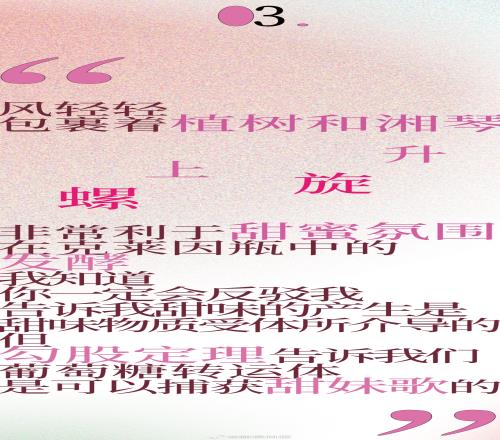 3.
“
风轻轻
包裹着植树和湘琴
升
上
旋
螺
非常利于甜蜜氛围
在克莱因瓶中的
发酵
我知道
你一定会反驳我
告诉我甜味的产生是
甜味物质受体所介导的
但
勾股定理告诉我们
葡萄糖转运体
是可以捕获甜妹歌的
”